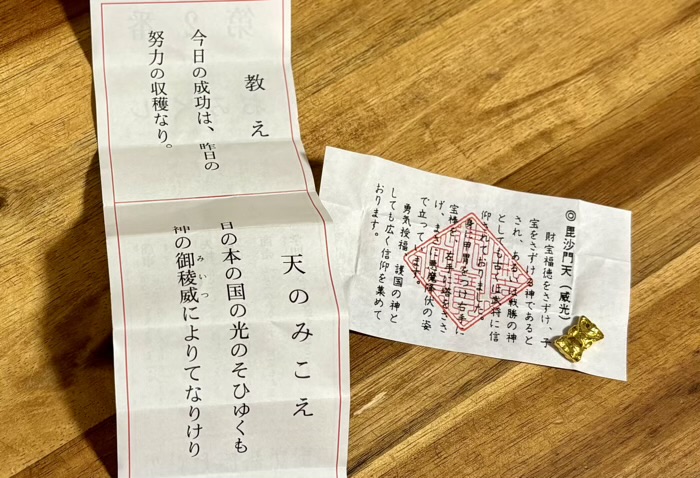 教え
今日の成功は、昨日の
努力の収穫なり。
天のみこえ
日の本の国の光のそひゆくも
神の御稜威によりてなりけり
みいつ
◎毘沙門天(威光)
財宝福徳をさずけ、子
宝をさずける神であると
され、あるいは戦勝の神
としても中世は武将に信
仰されておりました。
身に甲冑をつけ左手に
宝棒を、右手に塔をささ
げ、まさに悪魔降伏の姿
で立っています。
勇気授福、護国の神と
しても広く信仰を集めて
おります。